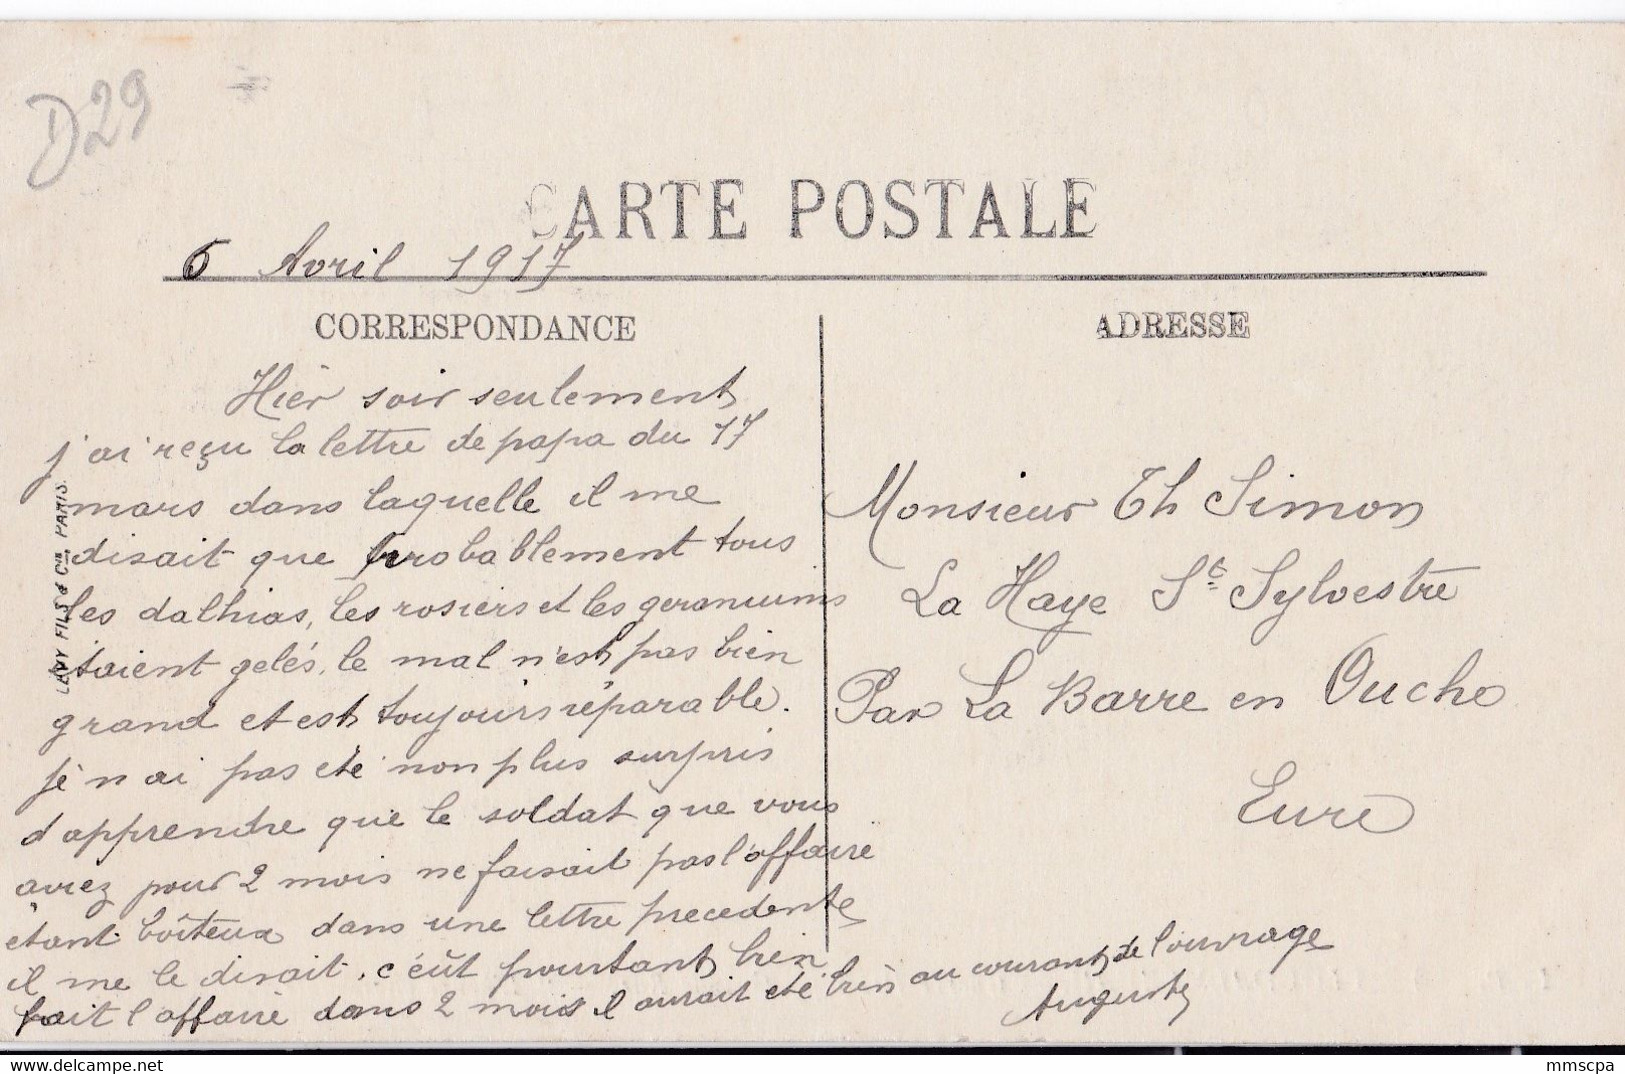 D29
CARTE POSTALE
6 Avril 1917
CORRESPONDANCE
Hier soir seulement
j'ai reçu la lettre de papa du 17
mars dans laquelle il me
disait que probablement tous
les dalhias, les rosiers et les geraniums
étaient gelés, le mal n'est pas bien
grand et est toujours réparable.
je n'ai pas été non plus surpris
d'apprendre que le soldat que vous
aviez pour 2 mois ne faisait pas l'affaire
étant boîteux dans une lettre precedente
il me le disait, c'eût pourtant bien
fait l'affaire dans 2 mois il aurait eté bien au courant de l'ouvrage
Auguste
LÉVY FILS & Cie PARIS.
ADRESSE
Monsieur Th Simon
La Haye St Sylvestre
Par La Barre en Ouche
Eure
mmscpa